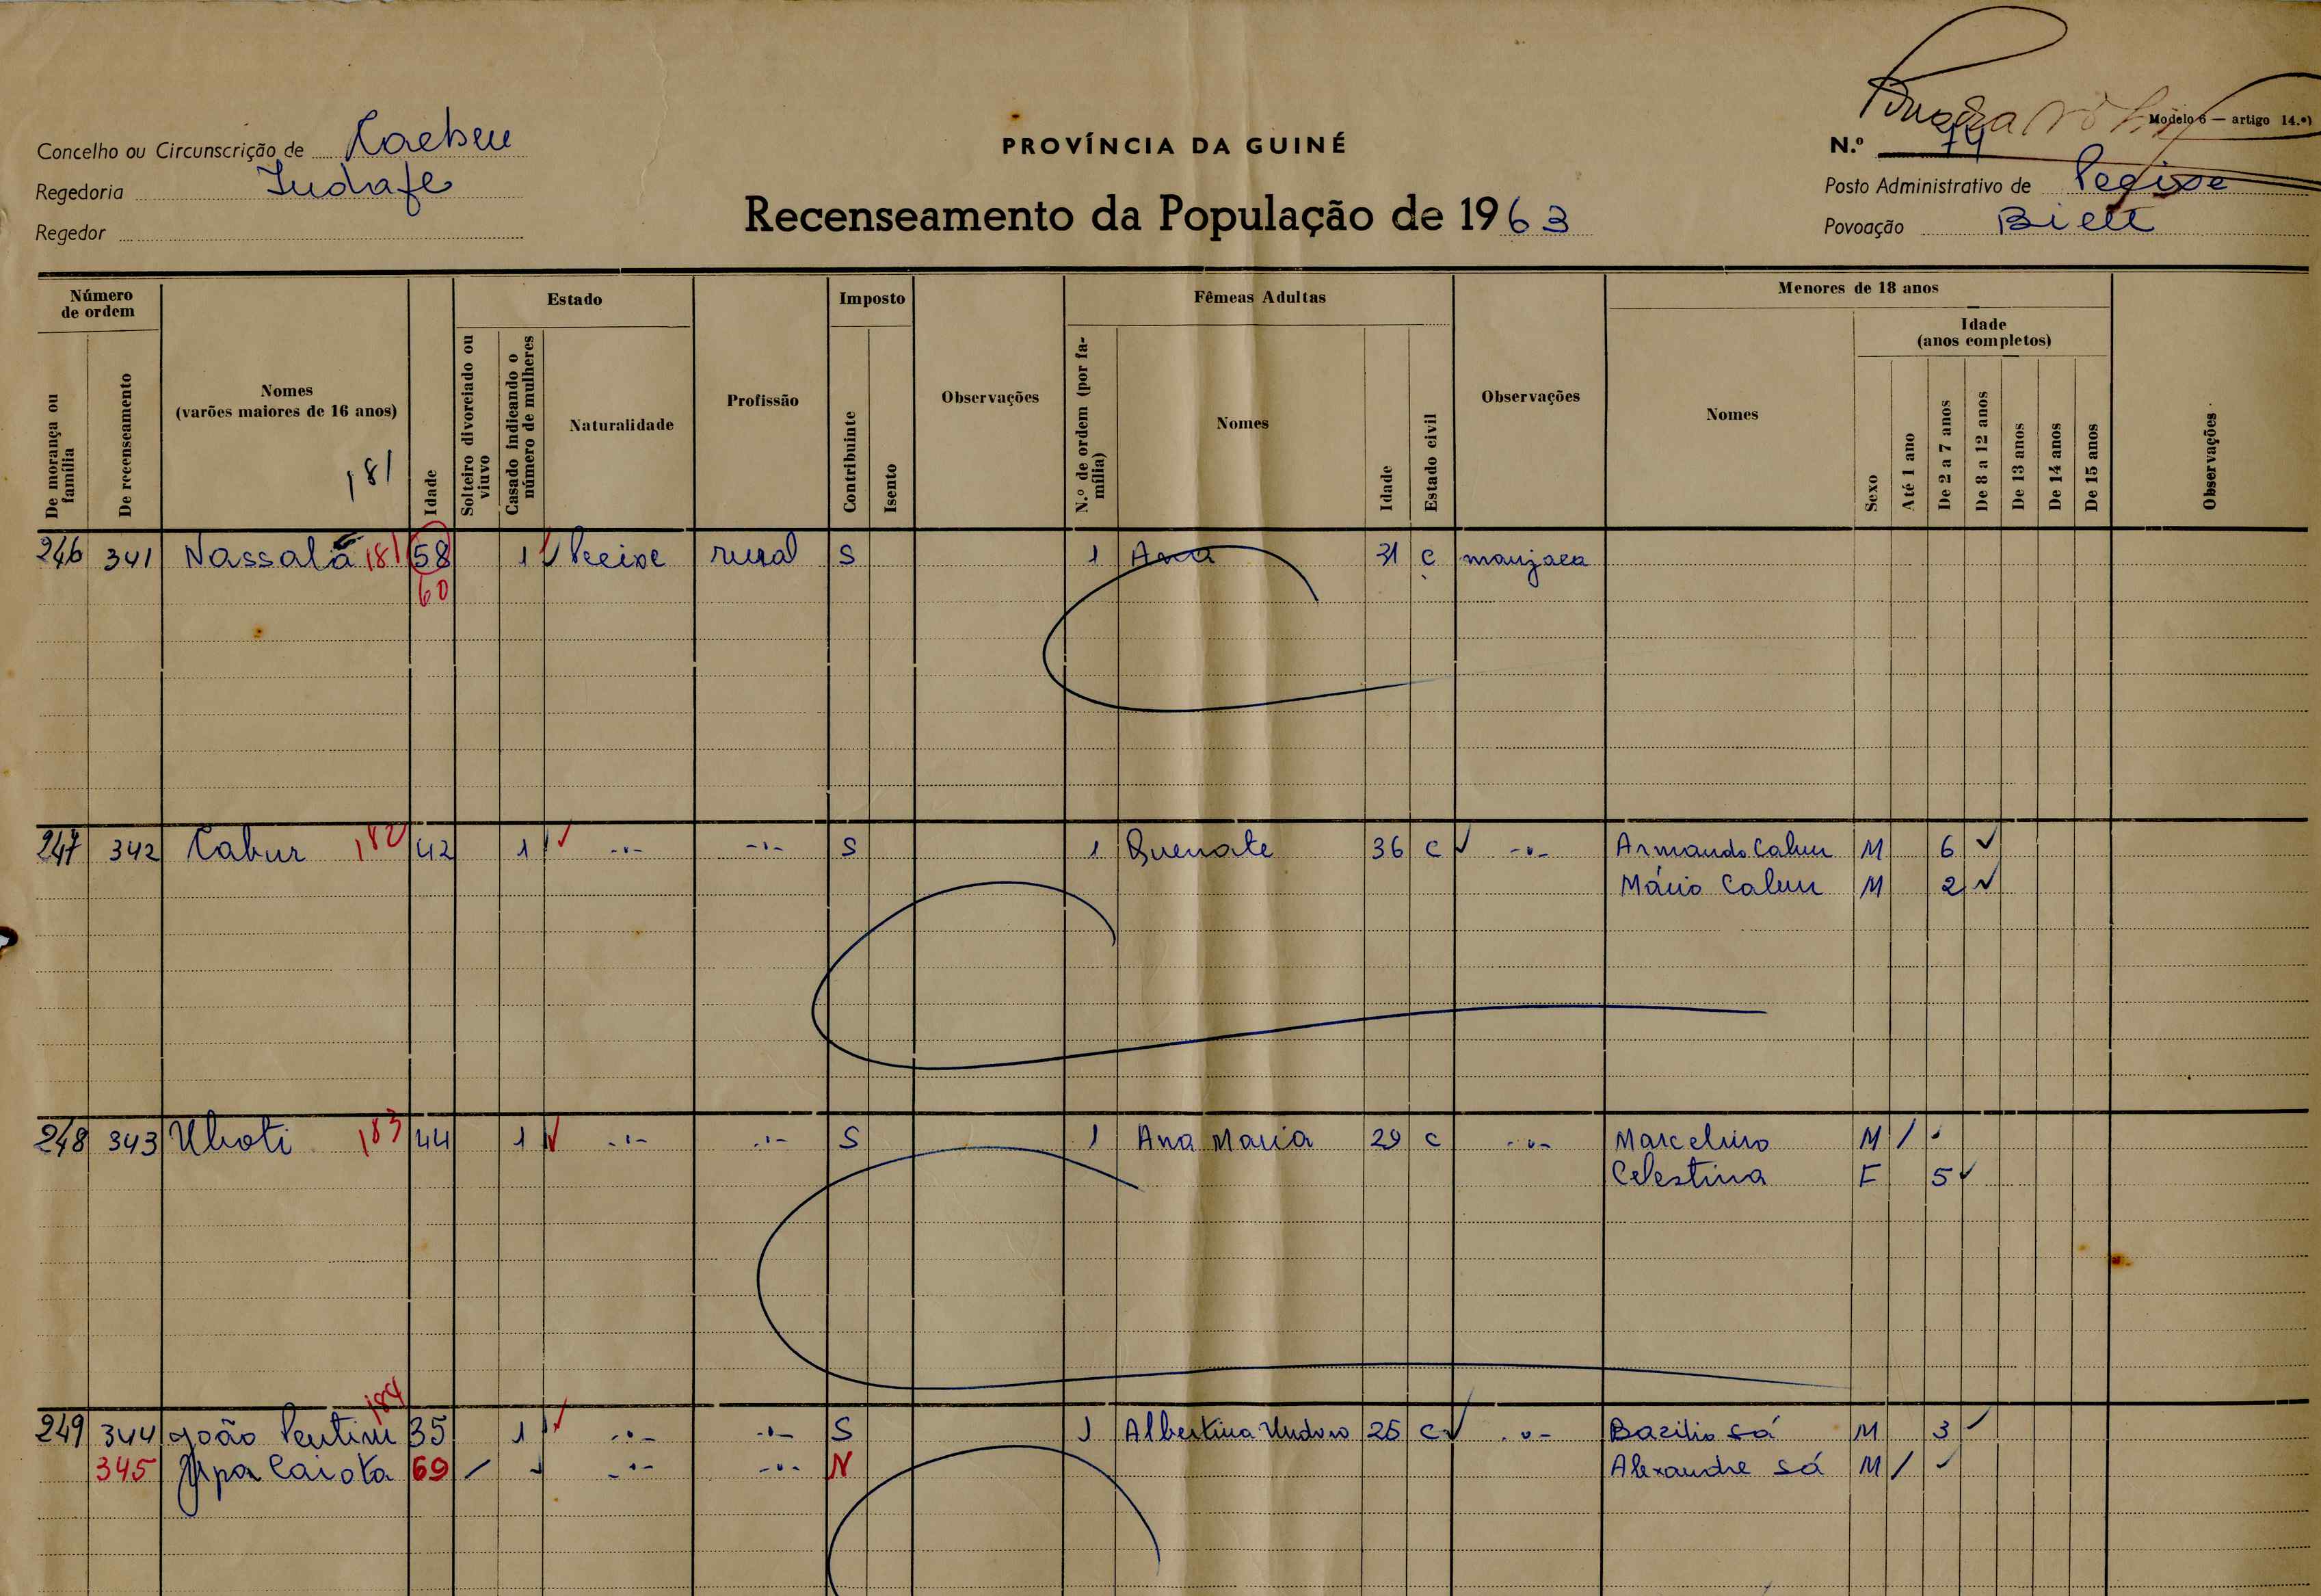 Modelo 6 — artigo 14.º)
Concelho ou Circunscrição de
PROVÍNCIA DA GUINÉ
N.º 74
Regedoria
Posto Administrativo de Pecixe
Recenseamento da População de 1963
Regedor
Povoação
Número de ordem
Estado
Imposto
Fêmeas Adultas
Menores de 18 anos
Idade (anos completos)
De morança ou família
De recenseamento
Nomes (varões maiores de 16 anos)
181
Idade
Solteiro divorciado ou viuvo
Casado indicando o número de mulheres
Naturalidade
Profissão
Contribuinte
Isento
Observações
N.º de ordem (por família)
Nomes
Idade
Estado civil
Observações
Nomes
Sexo
Até 1 ano
De 2 a 7 anos
De 8 a 12 anos
De 13 anos
De 14 anos
De 15 anos
Observações
246 341 Nassalã 181 58 1 Pecixe rural S 1 Ana 31 c manjaca
60
247 342 Cabur 182 42 1 -"- -"- S 1 Quenate 36 c -"- Armando Cabur M 6
Mário Cabur M 2
248 343 183 44 1 -"- -"- S 1 Ana Maria 29 c -"- Marcelino M /
Celestina F 5
184
249 344 João 35 1 -"- -"- S 1 Albertina 25 c -"- Bazilio Sá M 3
345 69 -"- -"- N Alexandre Sá M /